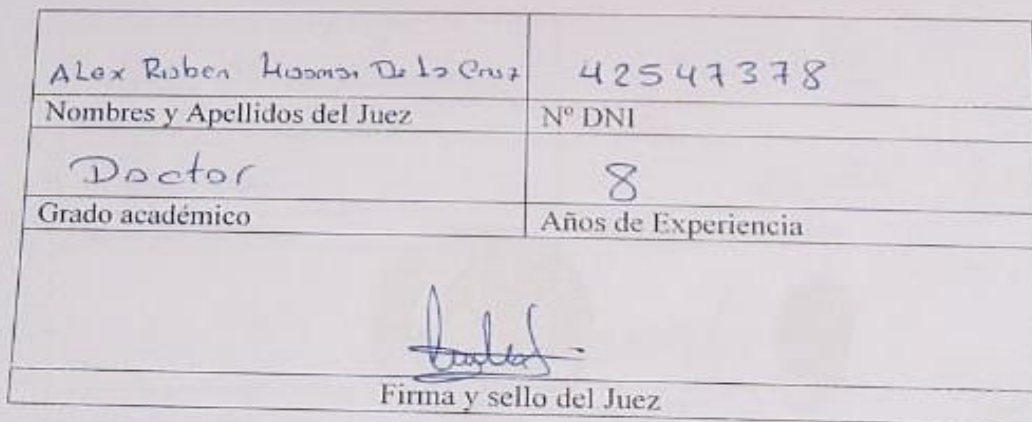 Alex Ruben Huaman De la Cruz 42547378
Nombres y Apellidos del Juez N° DNI
Doctor 8
Grado académico Años de Experiencia
Firma y sello del Juez